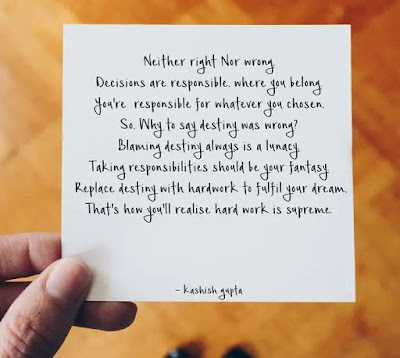 Neither right Nor wrong
Decisions are responsible, where you belong
You're responsible for whatever you chosen.
So, Why to say destiny was wrong?
Blaming destiny always is a lunacy
Taking responsibilities should be your fantasy
Replace destiny with hardwork to fulfil your dream.
That's how you'll realise hard work is supreme.
- kashish gupta